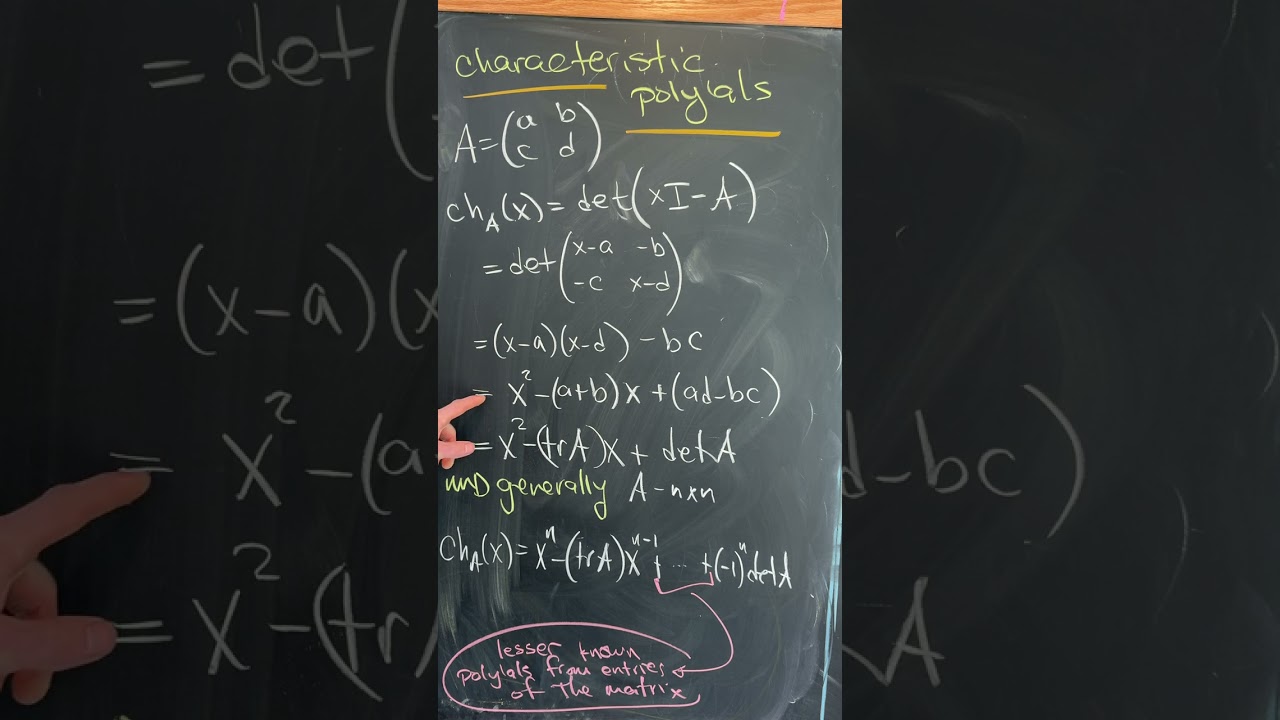 characteristic
poly'als
A = (a b
c d)
ch_A(x) = det(xI - A)
= det(x-a -b
-c x-d)
= (x-a)(x-d) - bc
= x² - (a+b)x + (ad-bc)
= x² - (trA)x + detA
generally A - n×n
ch_A(x) = xⁿ - (trA)xⁿ⁻¹ + ... + (-1)ⁿ detA
lesser known
poly'als from entries
of the matrix